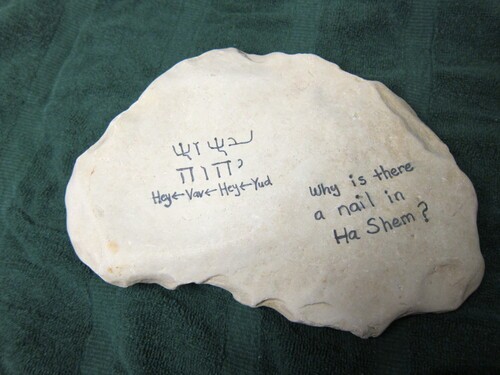 יהוה
Hey←Vav←Hey←Yud
Why is there
a nail in
Ha Shem?